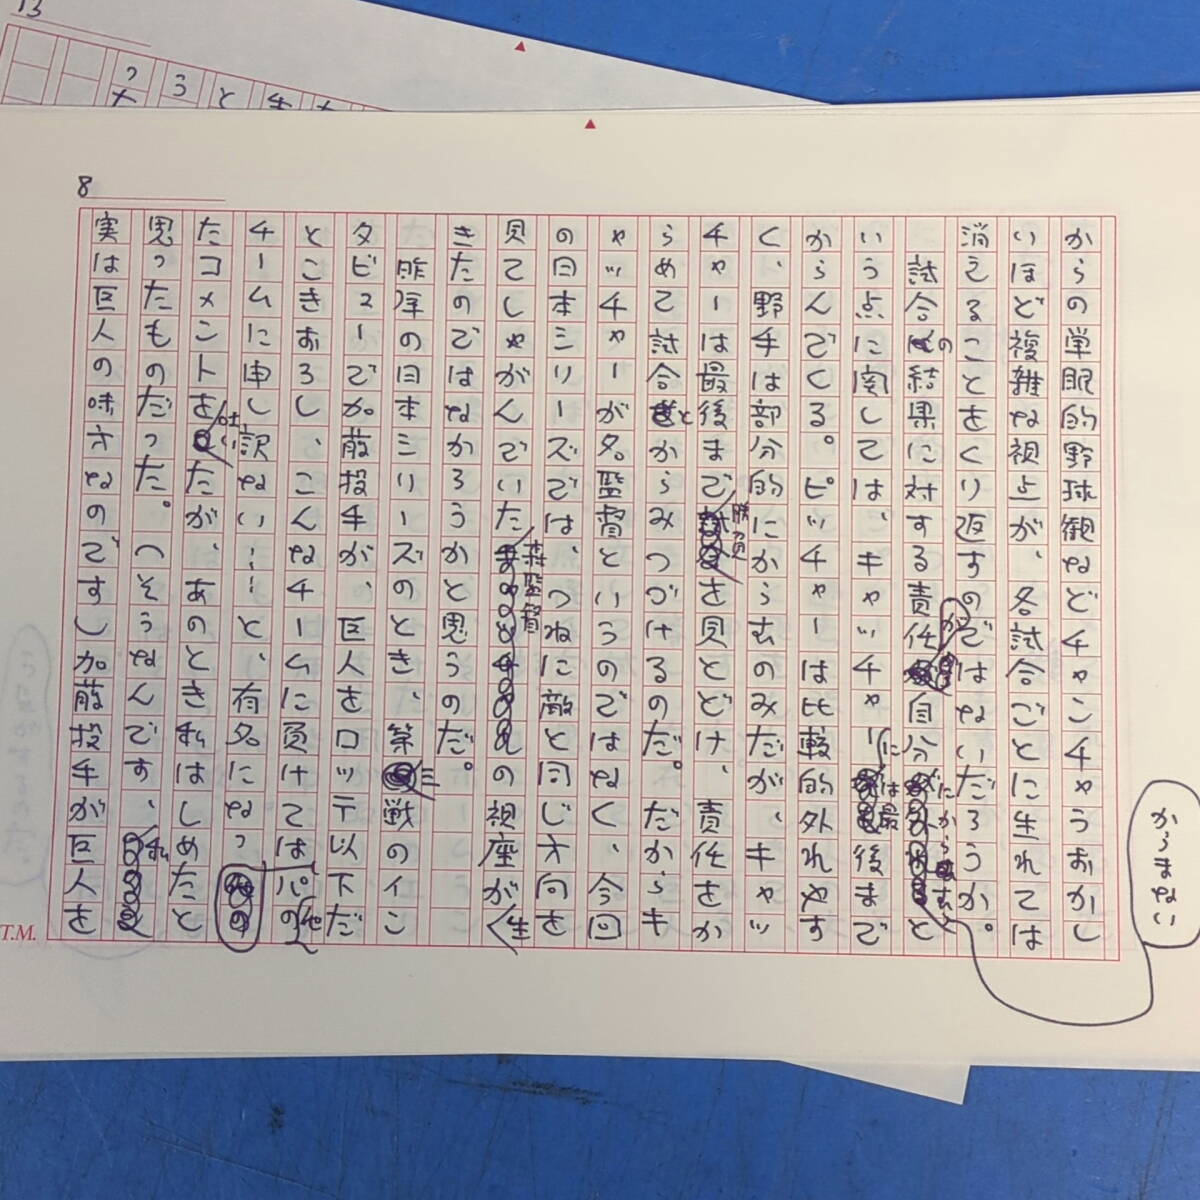 8
からの単眼的野球観などチャンチャラおかし
いほど複雑な視点が、各試合ごとに生れては
消えることをくり返すのではないだろうか。
試合の結果に対する責任が自分にからまないと
いう点に関しては、キャッチャーには最後まで
からんでくる。ピッチャーは比較的外れやす
く、野手は部分的にからむのみだが、キャッ
チャーは最後まで勝負を見とどけ、責任をか
らめて試合とからみつづけるのだ。だからキ
ャッチャーが名監督というのではなく、今回
の日本シリーズでは、つねに敵と同じ方向を
見てしゃがんでいた森監督の視座が生
きたのではなかろうかと思うのだ。
昨年の日本シリーズのとき、第三戦のイン
タビューで加藤投手が、巨人をロッテ以下だ
とこきおろし、こんなチームに負けてはパの他
チームに申し訳ない……と、有名になっ
たコメントを吐いたが、あのとき私はしめたと
思ったものだった。へそうなんです、私
実は巨人の味方なのですし加藤投手が巨人を
T.M.
13